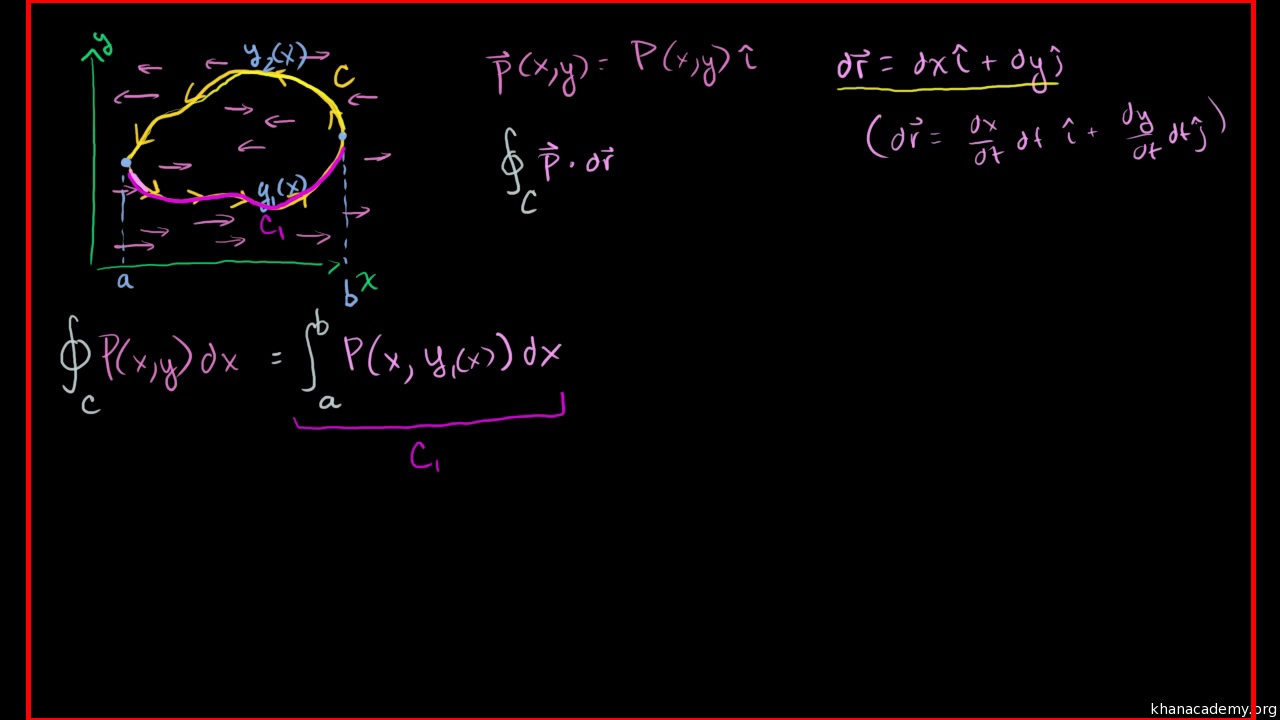 y
y₂(x)
C
y₁(x)
C₁
a
b
x
p⃗(x,y) = P(x,y) î
dr⃗ = dx î + dy ĵ
(dr⃗ = dx/dt dt î + dy/dt dt ĵ)
∮_C p⃗ · dr⃗
∮_C P(x,y) dx = ∫_a^b P(x, y₁(x)) dx
C₁
khanacademy.org